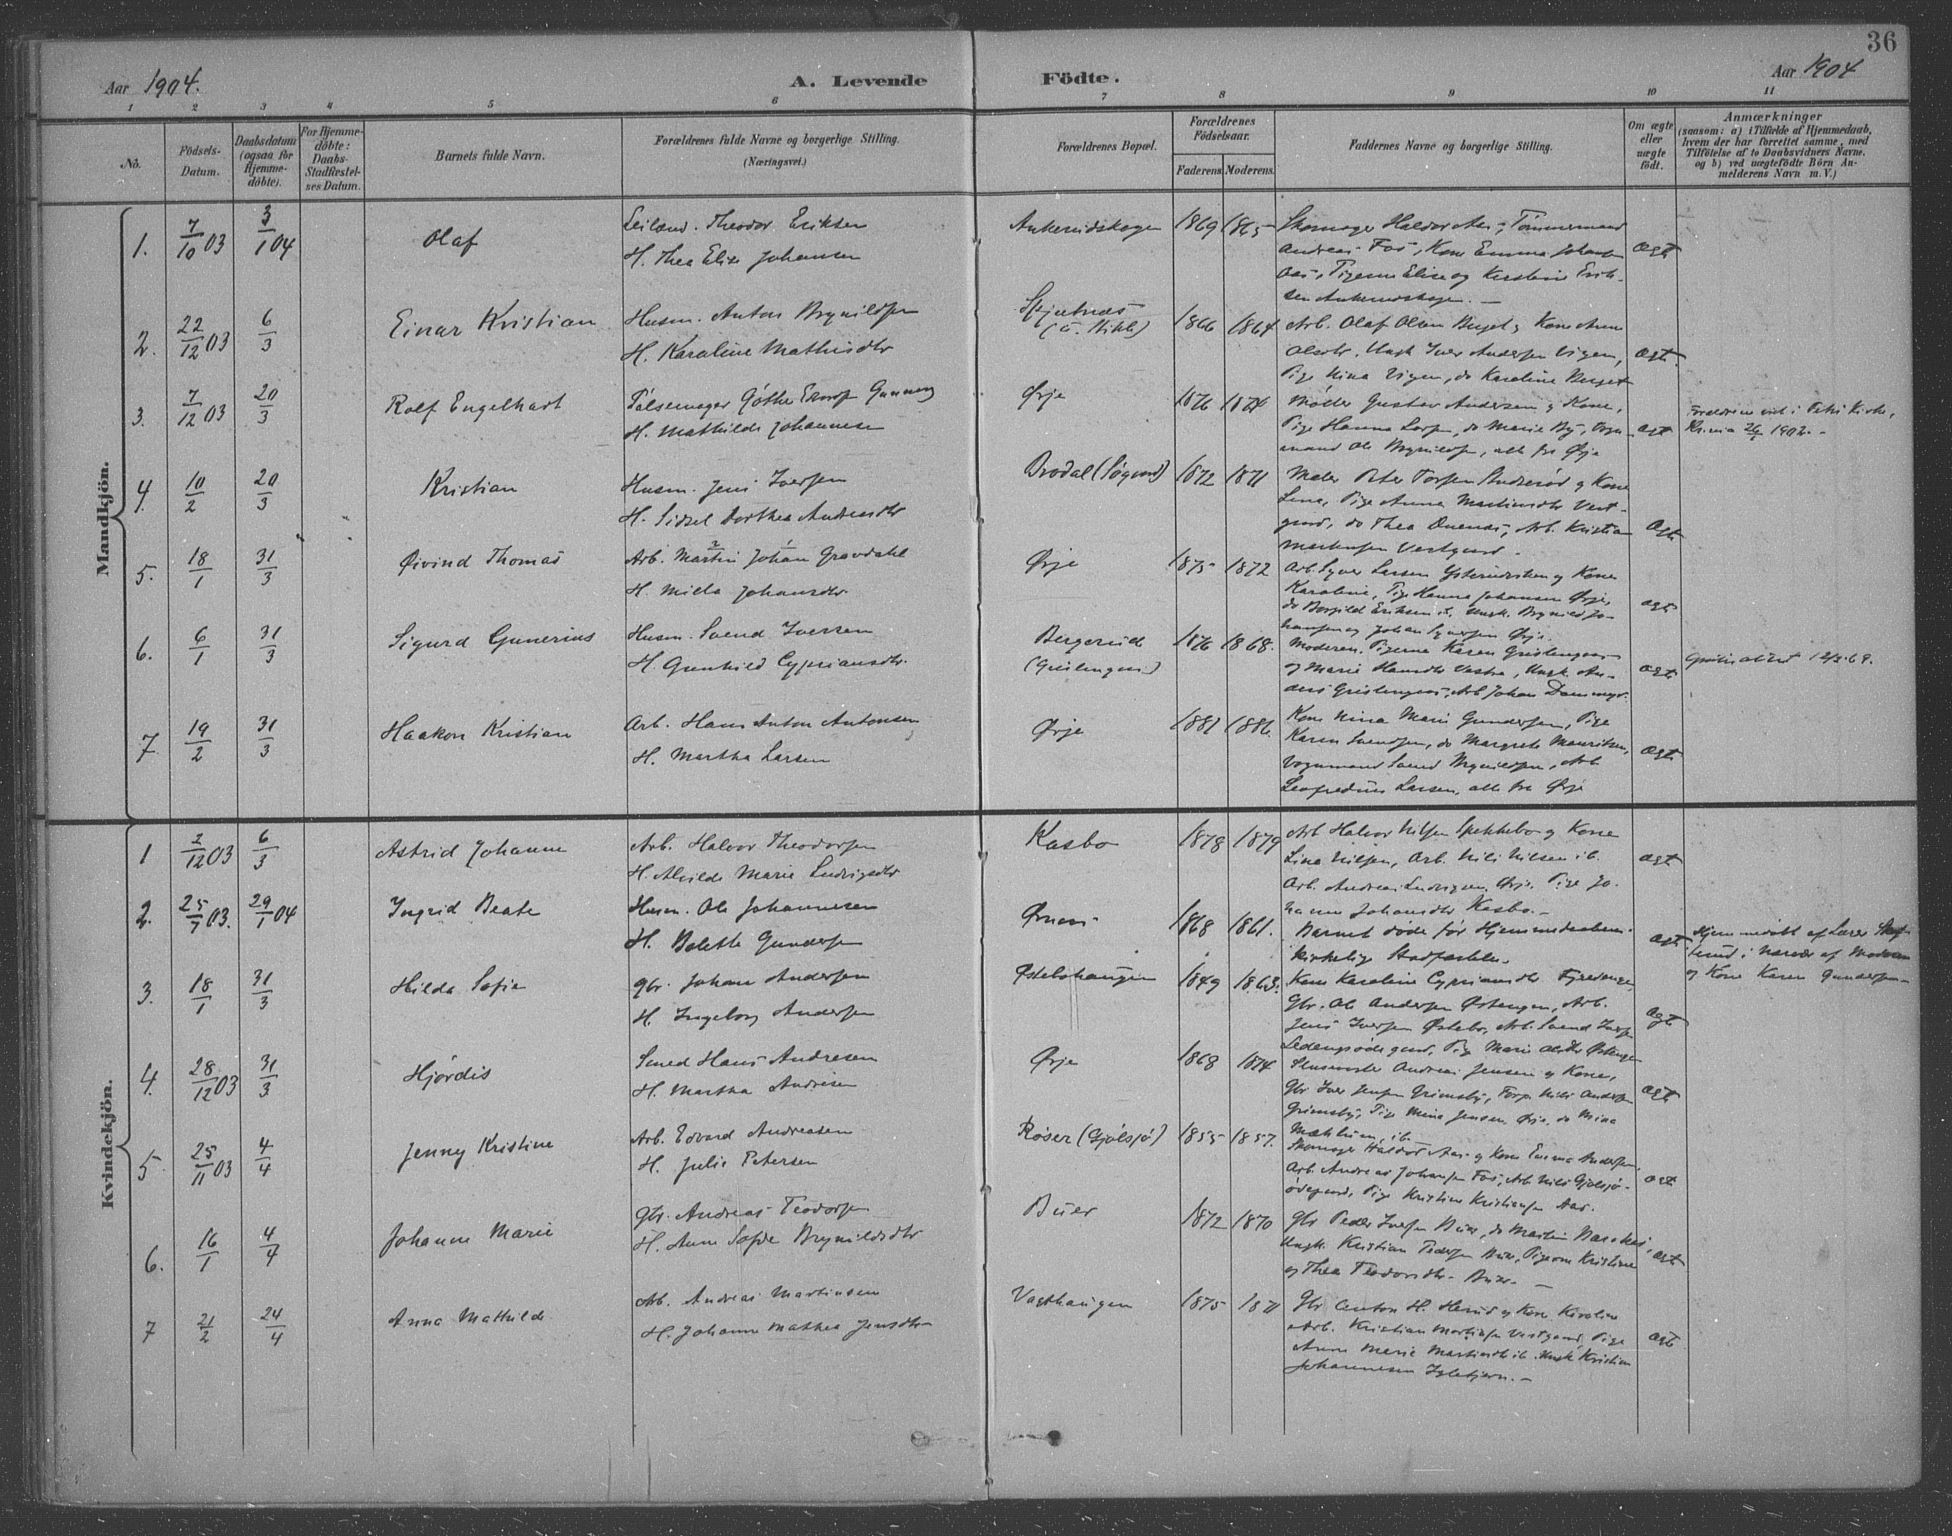 36
Aar 1904.
A. Levende
Födte.
Aar 1904
1 2 3 4 5 6 7 8 9 10 11
No.
Födsels-Datum.
Daabsdatum (ogsaa for Hjemme-döbte).
For Hjemme-döbte: Daabs-Stadfæstel-ses Datum.
Barnets fulde Navn.
Forældrenes fulde Navne og borgerlige Stilling.
(Næringsvei.)
Forældrenes Bopæl.
Forældrenes Födselsaar.
Faderens Moderens.
Faddernes Navne og borgerlige Stilling.
Om ægte eller uægte födt.
Anmærkninger
(saasom: a) i Tilfælde af Hjemmedaab,
hvem der har forrettet samme, med
Tilföielse af to Daabsvidners Navne.
og b) ved uægtefödte Börn An-
melderens Navn m. V.)
Mandkjön.
1. 7/10 03 3/1 04 Olaf
Theodor Eriksen
H. Thea Elise Johansen
Ankerudskogen 1869 1865
Skomager Haldor Aas, Tømmermand
Andreas Fos, Kone Emma Johansen
Aas, Pigerne Elise og Kristine Erik-
sen Ankerudskogen. —
ægte
2. 22/12 03 6/3 Einar Kristian
Husm. Anton Brynildsen
H. Karoline Mathisdtr
1866 1864
Arb. Olaf Olsen Berget og Kone Anne
Olsdtr. Ungk Iver Andersen Vigen,
Pige Nina Vigen, do Karoline Berget
ægte
3. 7/12 03 20/3 Rolf Engelhart
Pølsemager Göthe
H. Mathilde Johannesen
Ørje 1876 1874
Møller Gustav Andersen og Kone,
Pige Hanna Larsen, do Marie By, Vogn-
mand Ole Brynildsen, alle fra Ørje
ægte
Forældrene viet i Petri Kirke,
Kr.ania 26/ 1902. -
4. 10/2 20/3 Kristian
Husm. Jens Iversen
H. Sidsel Dorthea Andreasdtr
Brodal 1872 1871
Maler Peter Torsen og Kone
Lina, Pige Anna Martinsdtr Vest-
gard, do Thea Arb. Kristian
Martinsen Vestgard -
ægte
5. 18/1 31/3 Øivind Thomas
Arb. Martin Johan Gravdahl
H. Milla Johansdtr
Ørje 1875 1872
Arb. Syver Larsen og Kone
Karoline, Pige Hanna Johansen Ørje,
do Borghild Eriksen ib. Ungk. Brynild Jo-
hansen og Johan Syversen Ørje.
ægte
6. 6/1 31/3 Sigurd Gunerius
Husm. Svend Iversen
H. Gunhild Cypriansdtr.
Bergerud
1876 1868.
Moderen. Pigerne Karen
og Marie Hansdtr Vestre, Ungk. An-
ders Arb Johan Dammyr.
ægte
7. 19/2 31/3 Haakon Kristian
Arb. Hans Anton Antonsen
H. Martha Larsen
Ørje 1881 1886.
Kone Nina Marie Gundersen, Pige
Karen Svendsen, do Margrete Mauritsen,
Vognmand Svend Brynildsen, Arb.
Larsen, alle fra Ørje
ægte
Kvindekjön.
1 2/12 03 6/3 Astrid Johanne
Arb. Halvor Theodorsen
H. Alvilde Marie Ludvigsdtr
Kasbo 1878 1879
Arb Halvor Nilsen Spekkebo og Kone
Lina Nilsen, Arb. Nils Nilsen ib.
Arb. Andreas Ludvigsen Ørje. Pige Jo-
hanne Johansdtr Kasbo. —
ægte
2. 25/7 03. 29/1 04 Ingrid Beate
Husm. Ole Johannesen
H. Bolette Gundersen
1868 1861.
Barnet døde før Hjemmedaabens
kirkelige Stadfæstelse.
ægte
Hjemmedøbt af Lærer
i Nærvær af Moderen
og Kone Karen Gundersen —
3. 18/1 31/3 Hilda Sofie
Gbr. Johan Andersen
H. Ingeborg Andersen
1849 1863.
Kone Karoline Cypriansdtr
Gbr. Ole Andersen Østengen, Arb.
Jens Iversen Østebø, Arb. Svend Iversen
Pige Marie Østengen
ægte
4. 28/12 03 31/3 Hjördis
Smed Hans Andresen
H. Martha Andresen
Ørje 1868 1874.
Slusemester Andreas Jensen og Kone,
Gbr. Iver Jensen Grimsby, Forp. Nils Andersen
Grimsby, Pige Mina Jensen Ørje do Mina
ib.
ægte
5 25/11 03 4/4 Jenny Kristine
Arb. Edvard Andreasen
H. Julie Petersen
Røser (Gjølsjø) 1855 1857.
Skomager Haldor Aas og Kone Emma Andersen,
Arb. Andreas Johansen Fos, Arb. Nils Gjølsjø-
ødegaard, Pige Kristine Kristiansen Aas.
ægt
6. 16/1 4/4 Johanne Marie
Gbr. Andreas Teodorsen
H. Anne Sofie Brynildsdtr
Buer 1872 1870
Gbr Peder Iversen Buer, do Martin
Ungk. Kristian Pedersen Buer, Pigerne Kristine
og Thea Teodorsdtr. Buer. —
ægte
7 21/2 24/4 Anna Mathilde
Arb. Andreas Martinsen
H. Johanne Mathea Jensdtr
Vesthaugen 1875 1871
Gbr Anton H. og Kone Karoline
Arb. Kristian Martinsen Vestgard, Pige
Anne Marie Martinsdtr ib. Ungk Kristian
Johannesen —
ægte